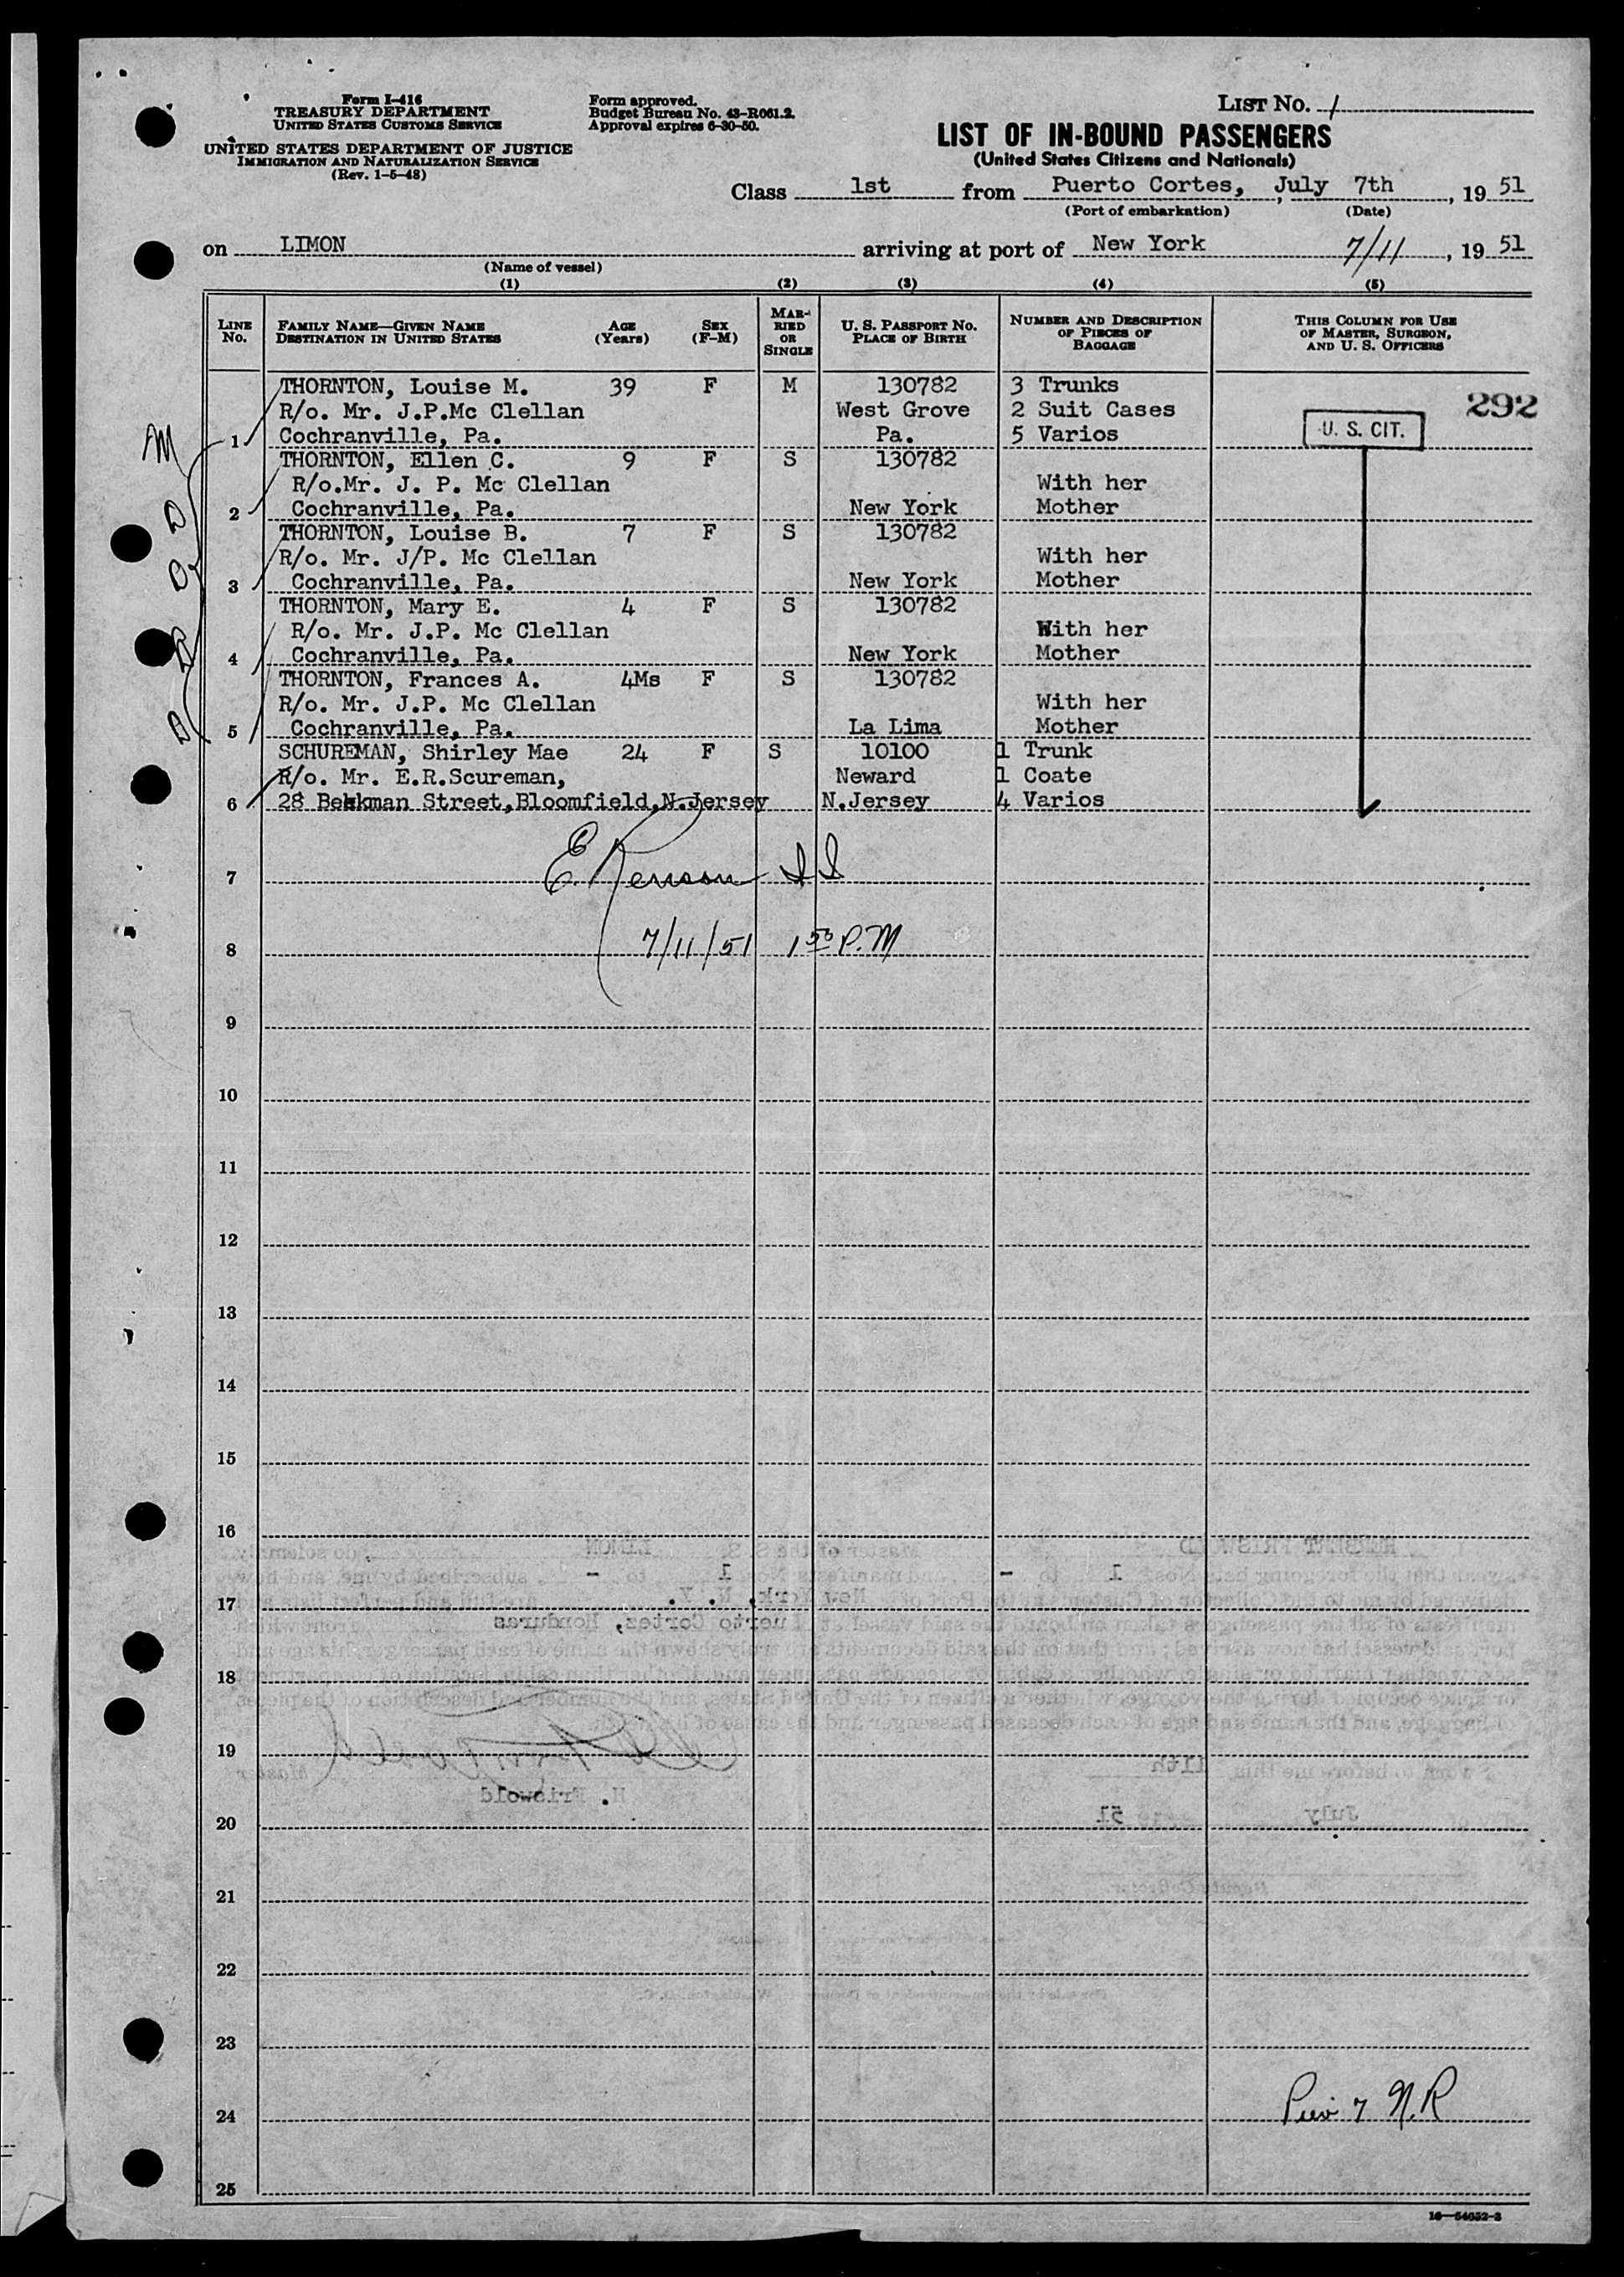 Form I-416
TREASURY DEPARTMENT
UNITED STATES CUSTOMS SERVICE
UNITED STATES DEPARTMENT OF JUSTICE
IMMIGRATION AND NATURALIZATION SERVICE
(Rev. 1-5-48)
Form approved.
Budget Bureau No. 43-R061.2.
Approval expires 6-30-50.
LIST NO. 1
LIST OF IN-BOUND PASSENGERS
(United States Citizens and Nationals)
Class 1st from Puerto Cortes, July 7th, 19 51
(Port of embarkation) (Date)
on LIMON arriving at port of New York 7/11, 19 51
(Name of vessel)
(1) (2) (3) (4) (5)
LINE NO.
FAMILY NAME—GIVEN NAME
DESTINATION IN UNITED STATES
AGE (Years)
SEX (F-M)
MARRIED OR SINGLE
U. S. PASSPORT NO.
PLACE OF BIRTH
NUMBER AND DESCRIPTION OF PIECES OF BAGGAGE
THIS COLUMN FOR USE OF MASTER, SURGEON, AND U. S. OFFICERS
THORNTON, Louise M. 39 F M 130782 3 Trunks 292
R/o. Mr. J.P.Mc Clellan West Grove 2 Suit Cases
1 Cochranville, Pa. Pa. 5 Varios U. S. CIT.
M
THORNTON, Ellen C. 9 F S 130782
R/o.Mr. J. P. Mc Clellan With her
2 Cochranville, Pa. New York Mother
D
THORNTON, Louise B. 7 F S 130782
R/o. Mr. J/P. Mc Clellan With her
3 Cochranville, Pa. New York Mother
D
THORNTON, Mary E. 4 F S 130782
R/o. Mr. J.P. Mc Clellan With her
4 Cochranville, Pa. New York Mother
D
THORNTON, Frances A. 4Ms F S 130782
R/o. Mr. J.P. Mc Clellan With her
5 Cochranville, Pa. La Lima Mother
D
SCHUREMAN, Shirley Mae 24 F S 10100 1 Trunk
R/o. Mr. E.R.Scureman, Neward 1 Coate
6 28 Bekkman Street,Bloomfield,N.Jersey N.Jersey 4 Varios
7
8 7/11/51 1 50 P.M
9
10
11
12
13
14
15
16
17
18
19
20
21
22
23
24 Pier 7 N.R
25
16—54652-2